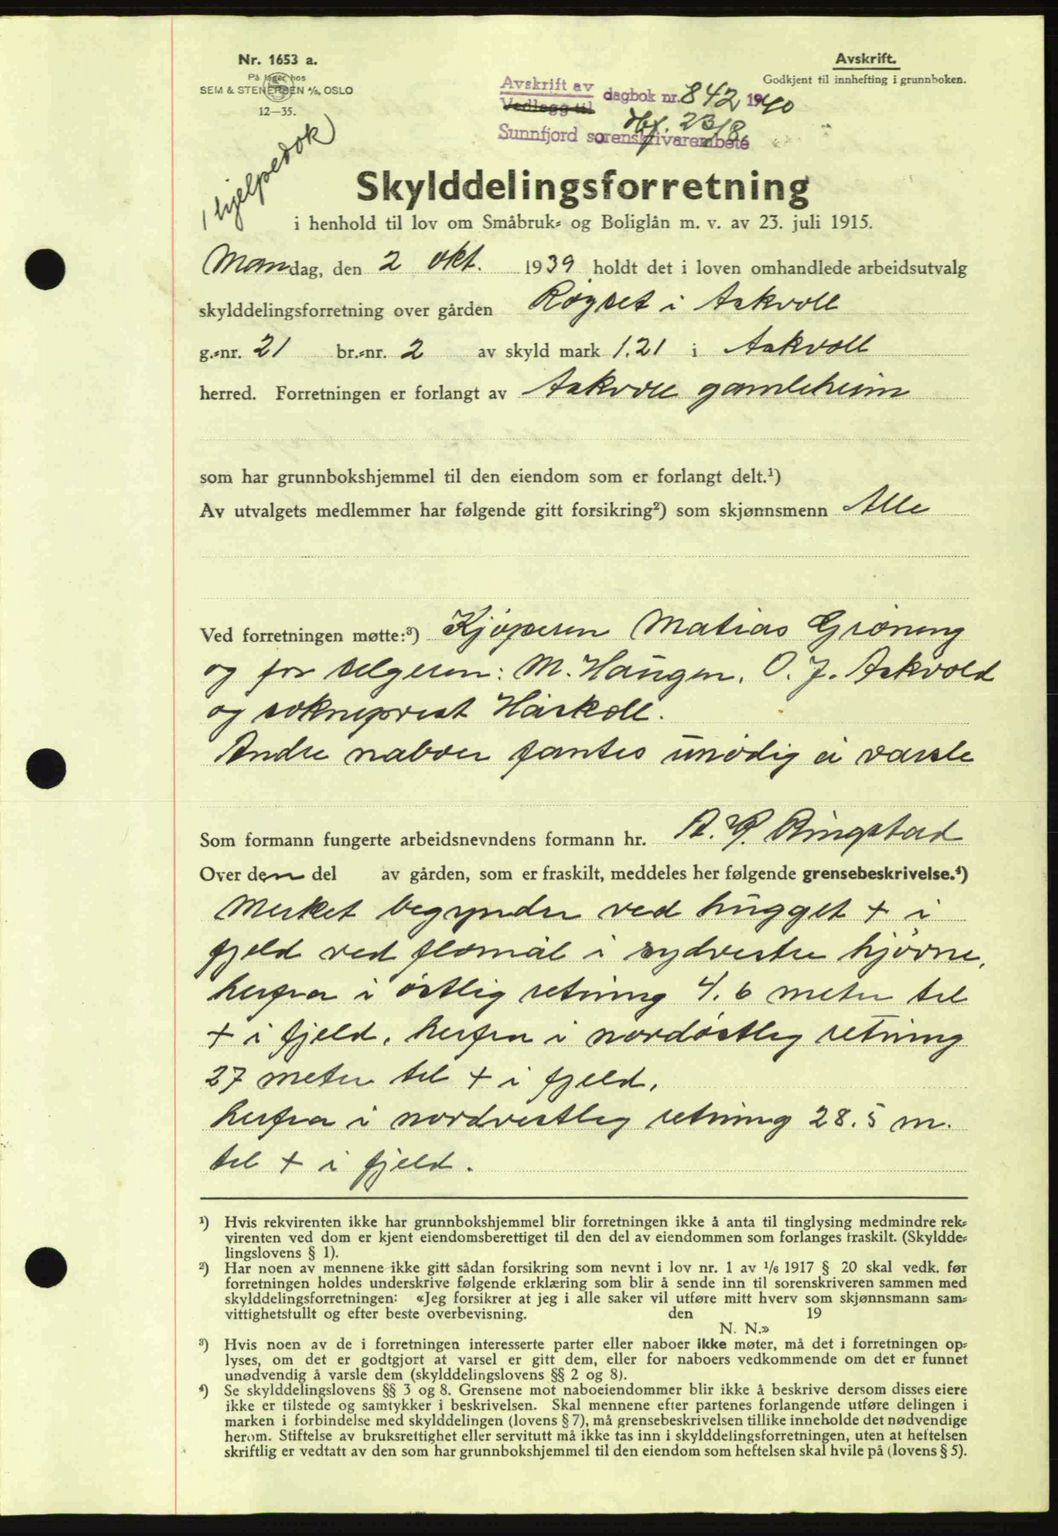 Nr. 1653 a.
På lager hos
SEM & STENERSEN A/S, OSLO
12—35.
1 hjelpedok
Avskrift.
Godkjent til innhefting i grunnboken.
Avskrift av
Vedlegg til
dagbok nr. 842 1940
Sunnfjord sorenskrivarembete
23/8.
Skylddelingsforretning
i henhold til lov om Småbruk- og Boliglån m. v. av 23. juli 1915.
Mandag, den 2 okt. 1939 holdt det i loven omhandlede arbeidsutvalg
skylddelingsforretning over gården Røgset i Askvoll
g.-nr. 21 br.-nr. 2 av skyld mark 1.21 i Askvoll
herred. Forretningen er forlangt av Askvoll gamleheim
som har grunnbokshjemmel til den eiendom som er forlangt delt.¹)
Av utvalgets medlemmer har følgende gitt forsikring²) som skjønnsmenn Alle
Ved forretningen møtte:³) Kjøperen Matias Grøning
og for selgeren: M. Haugen, O. J. Askvold
og sokneprest Hårkoll.
Andre naboer fantes unødig å varsle
Som formann fungerte arbeidsnevndens formann hr. A. P. Ringstad
Over den del av gården, som er fraskilt, meddeles her følgende grensebeskrivelse.⁴)
Merket begynder ved hugget + i
fjeld ved flomål i sydvestre hjørne,
herfra i østlig retning 4.6 meter til
+ i fjeld, herfra i nordøstleg retning
27 meter til + i fjeld,
herfra i nordvestleg retning 28.5 m.
til + i fjeld.
¹) Hvis rekvirenten ikke har grunnbokshjemmel blir forretningen ikke å anta til tinglysing medmindre rek-
virenten ved dom er kjent eiendomsberettiget til den del av eiendommen som forlanges fraskilt. (Skyldde-
lingslovens § 1).
²) Har noen av mennene ikke gitt sådan forsikring som nevnt i lov nr. 1 av 1/6 1917 § 20 skal vedk. før
forretningen holdes underskrive følgende erklæring som blir å sende inn til sorenskriveren sammen med
skylddelingsforretningen: «Jeg forsikrer at jeg i alle saker vil utføre mitt hverv som skjønnsmann sam-
vittighetsfullt og efter beste overbevisning. den 19
N. N.»
³) Hvis noen av de i forretningen interesserte parter eller naboer ikke møter, må det i forretningen op-
lyses, om det er godtgjort at varsel er gitt dem, eller for naboers vedkommende om det er funnet
unødvendig å varsle dem (skylddelingslovens §§ 2 og 8).
⁴) Se skylddelingslovens §§ 3 og 8. Grensene mot naboeiendommer blir ikke å beskrive dersom disses eiere
ikke er tilstede og samtykker i beskrivelsen. Skal mennene efter partenes forlangende utføre delingen i
marken i forbindelse med skylddelingen (lovens § 7), må grensebeskrivelsen tillike inneholde det nødvendige
herom. Stiftelse av bruksrettighet eller servitutt må ikke tas inn i skylddelingsforretningen, uten at heftelsen
skriftlig er vedtatt av den som har grunnbokshjemmel til den eiendom som heftelsen skal hvile på (lovens § 5).